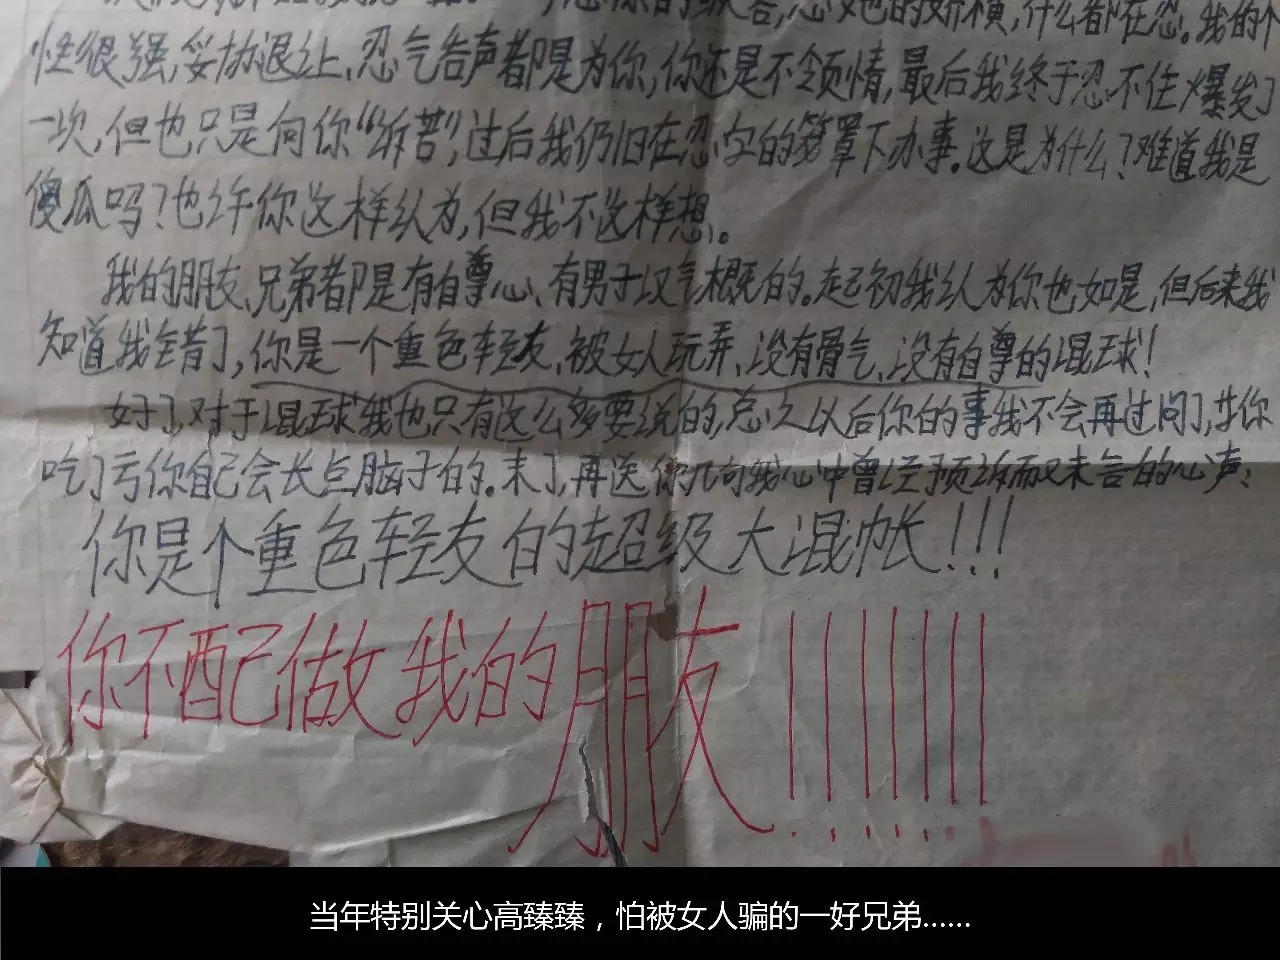 忍你的纵容,忍她的妖横,什么都在忍。我的个
性很强,妥协退让、忍气告声都是为你,你还是不领情,最后我终于忍不住爆发了
一次,但也只是向你“诉苦”,过后我仍旧在忍字的笼罩下办事。这是为什么?难道我是
傻瓜吗?也许你这样认为,但我不这样想。
我的朋友、兄弟都是有自尊心、有男子汉气概的。起初我认为你也如是,但后来我
知道我错了,你是一个重色轻友、被女人玩弄、没有骨气、没有自尊的混球!
好了,对于混球我也只有这么多要说的,总之以后你的事我不会再过问了,等你
吃了亏你自己会长点脑子的。末了,再送你几句我心中曾经预诉而又未告的心声:
你是个重色轻友的超级大混帐!!!
你不配做我的朋友!!!!!!!
当年特别关心高臻臻,怕被女人骗的一好兄弟……